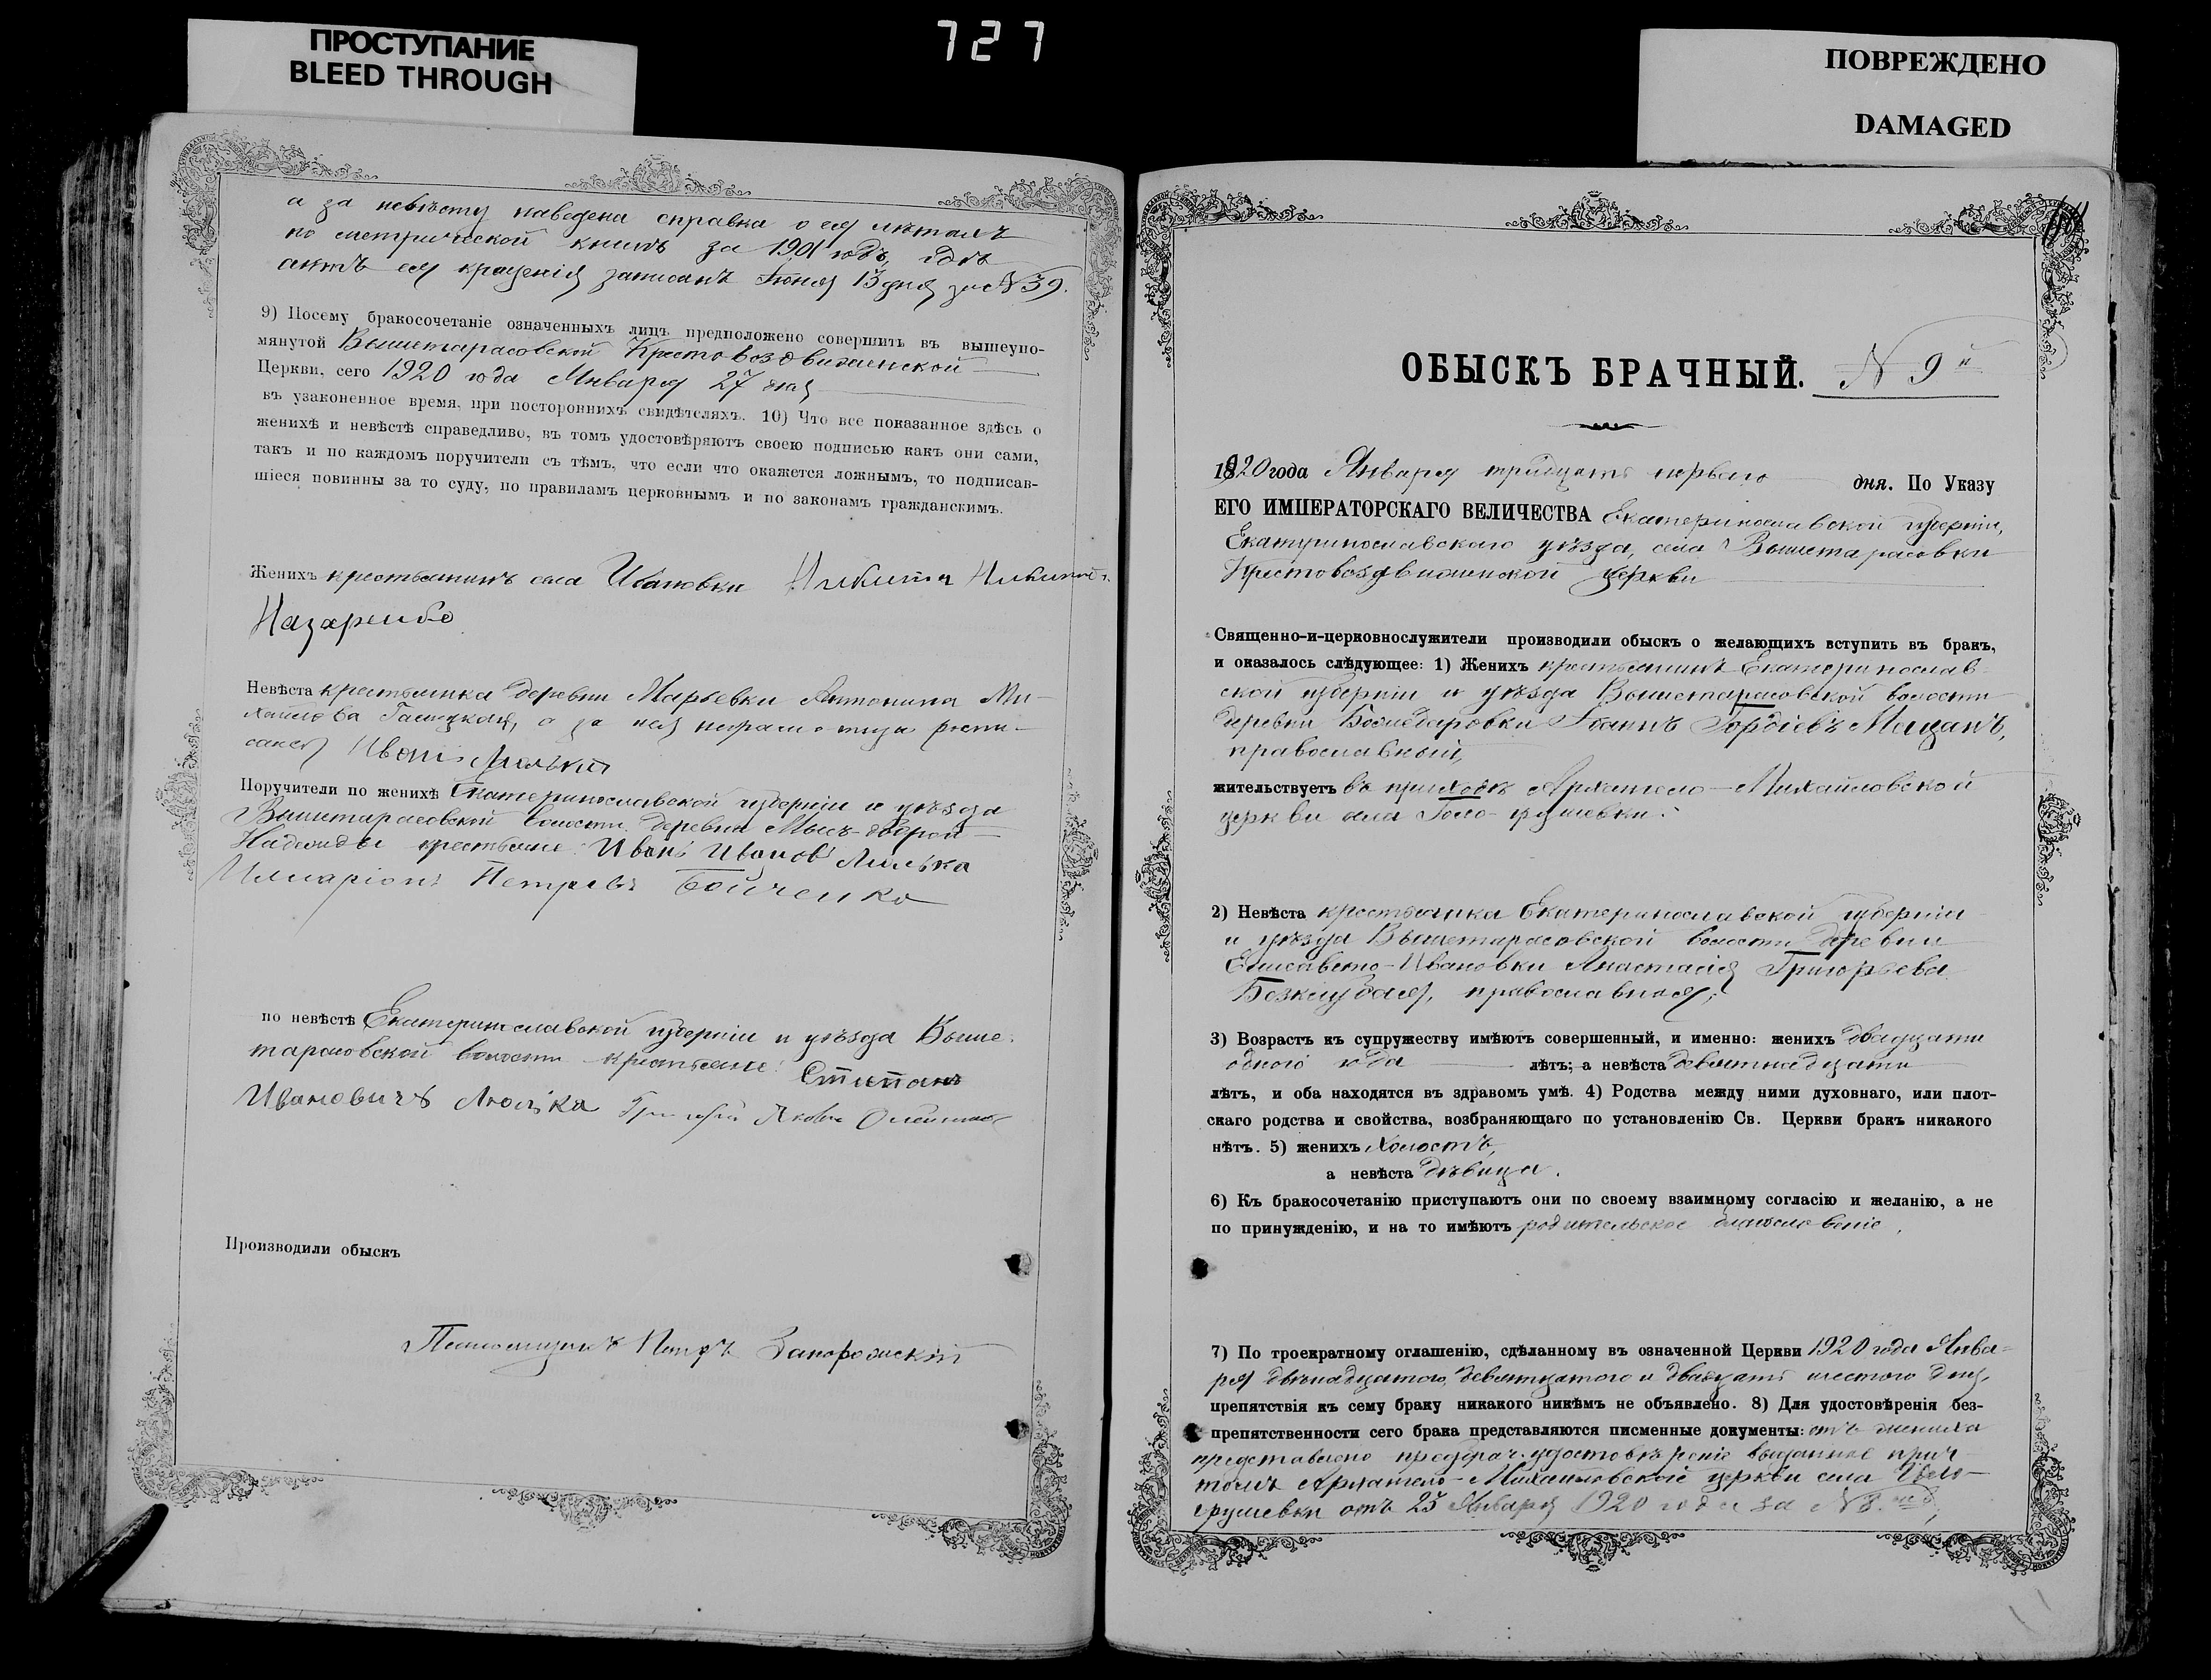 ПРОСТУПАНИЕ
BLEED THROUGH
727
ПОВРЕЖДЕНО
DAMAGED
а за невѣсту наведена справка о ея лѣтахъ
по метрической книгѣ за 1901 годъ, гдѣ
актъ ея крещенія записанъ Іюня 13 дня за № 39.
9) Посему бракосочетаніе означенныхъ лицъ предположено совершить въ вышеупо-
мянутой Вышетарасовской Крестовоздвиженской
Церкви, сего 1920 года Января 27 дня
въ узаконенное время, при постороннихъ свидѣтеляхъ. 10) Что все показанное здѣсь о
женихѣ и невѣстѣ справедливо, въ томъ удостовѣряютъ своею подписью какъ они сами,
такъ и по каждомъ поручители съ тѣмъ, что если что окажется ложнымъ, то подписав-
шіеся повинны за то суду, по правиламъ церковнымъ и по законамъ гражданскимъ.
Женихъ крестьянинъ села Ивановки Никита
Назаренко
Невѣста крестьянка деревни Марьевки Антонина Ми-
хайлова а за нея неграмотную роспи-
сался Иванъ
Поручители по женихѣ Екатеринославской губерніи и уѣзда
Вышетарасовской волости деревни
Надежды крестьяне: Иванъ Ивановъ Люлька
Илларіонъ Петровъ Бойченко
по невѣстѣ Екатеринославской губерніи и уѣзда Выше-
тарасовской волости крестьяне: Степанъ
Ивановичъ Люлька Григорій Яковл.
Производили обыскъ
Псаломщикъ Петръ Запорожскій
ОБЫСКЪ БРАЧНЫЙ. № 9й
1920 года Января тридцать перваго дня. По Указу
ЕГО ИМПЕРАТОРСКАГО ВЕЛИЧЕСТВА Екатеринославской губерніи,
Екатеринославскаго уѣзда, села Вышетарасовки
Крестовоздвиженской церкви
Священно-и-церковнослужители производили обыскъ о желающихъ вступить въ бракъ,
и оказалось слѣдующее: 1) Женихъ крестьянинъ Екатеринослав-
ской губерніи и уѣзда Вышетарасовской волости
деревни Божедаровки Іоаннъ Гордіевъ Мещанъ,
православный,
жительствуетъ въ приходѣ Архангело-Михайловской
церкви села Голо-грушевки.
2) Невѣста крестьянка Екатеринославской губерніи
и уѣзда Вышетарасовской волости деревни
Елисавето-Ивановки Анастасія Григорьева
Безклубая, православная;
3) Возрастъ къ супружеству имѣютъ совершенный, и именно: женихъ двадцати
одного года лѣтъ; а невѣста девятнадцати
лѣтъ, и оба находятся въ здравомъ умѣ. 4) Родства между ними духовнаго, или плот-
скаго родства и свойства, возбраняющаго по установленію Св. Церкви бракъ никакого
нѣтъ. 5) женихъ холостъ,
а невѣста дѣвица.
6) Къ бракосочетанію приступаютъ они по своему взаимному согласію и желанію, а не
по принужденію, и на то имѣютъ родительское благословеніе.
7) По троекратному оглашенію, сдѣланному въ означенной Церкви 1920 года Янва-
ря двѣнадцатого, девятнадцатого и двадцать шестого дня,
препятствія къ сему браку никакого никѣмъ не объявлено. 8) Для удостовѣренія без-
препятственности сего брака представляются писменные документы: отъ жениха
представлено предбрач. удостовѣреніе выданное прич-
томъ Архангело-Михайловской церкви села Голо-
грушевки отъ 25 Января 1920 года за № 8